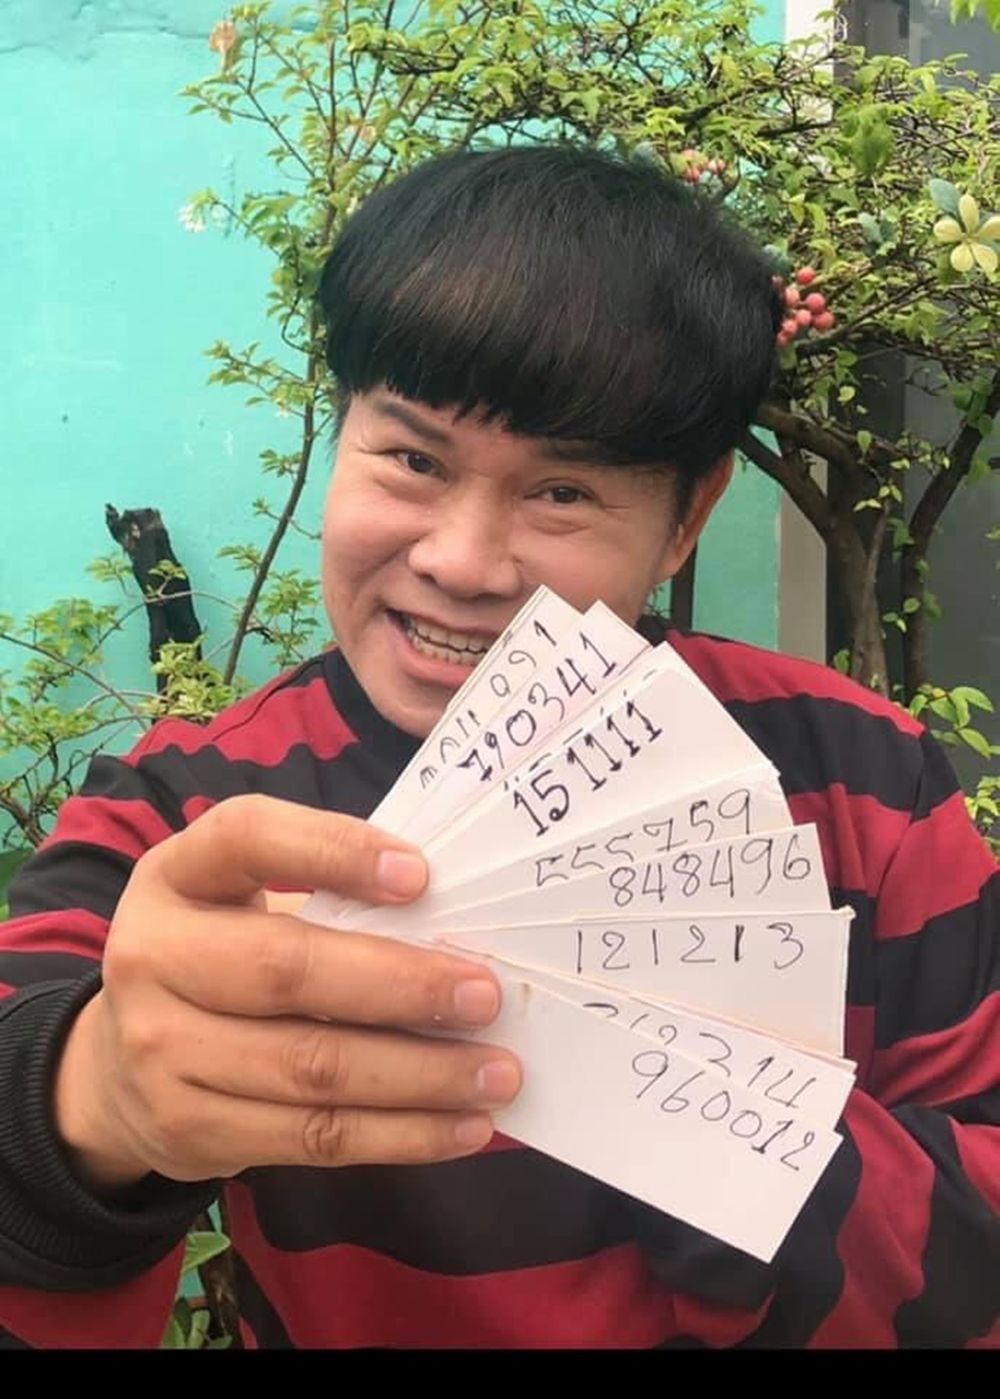 790341
151111
555759
848496
121213
960012